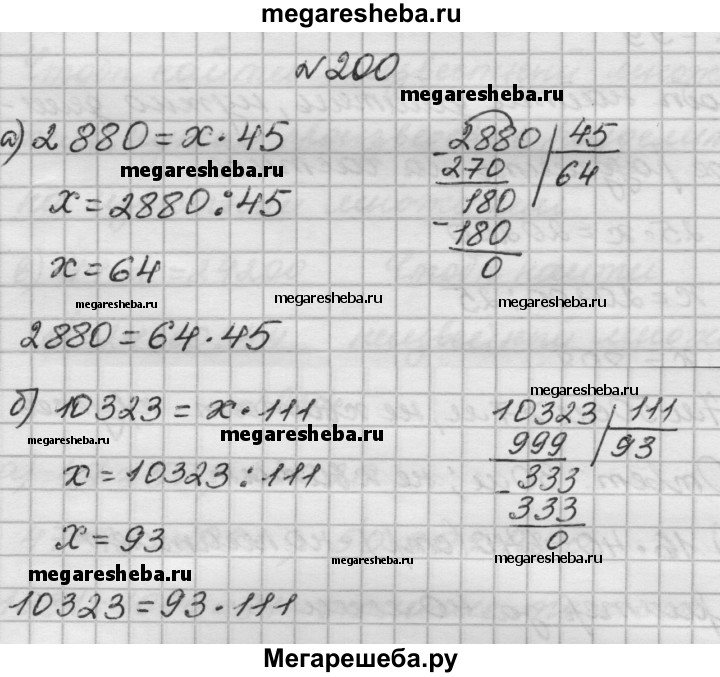 megaresheba.ru
№ 200
megaresheba.ru
а) 2880 = x · 45
megaresheba.ru
x = 2880 : 45
x = 64
megaresheba.ru
megaresheba.ru
2880 = 64 · 45
- 2880 | 45
270 | 64
180
- 180
0
megaresheba.ru
megaresheba.ru
б) 10323 = x · 111
megaresheba.ru
megaresheba.ru
x = 10323 : 111
x = 93
megaresheba.ru
megaresheba.ru
10323 = 93 · 111
10323 | 111
999 | 93
- 333
333
0
megaresheba.ru
Мегарешеба.ру